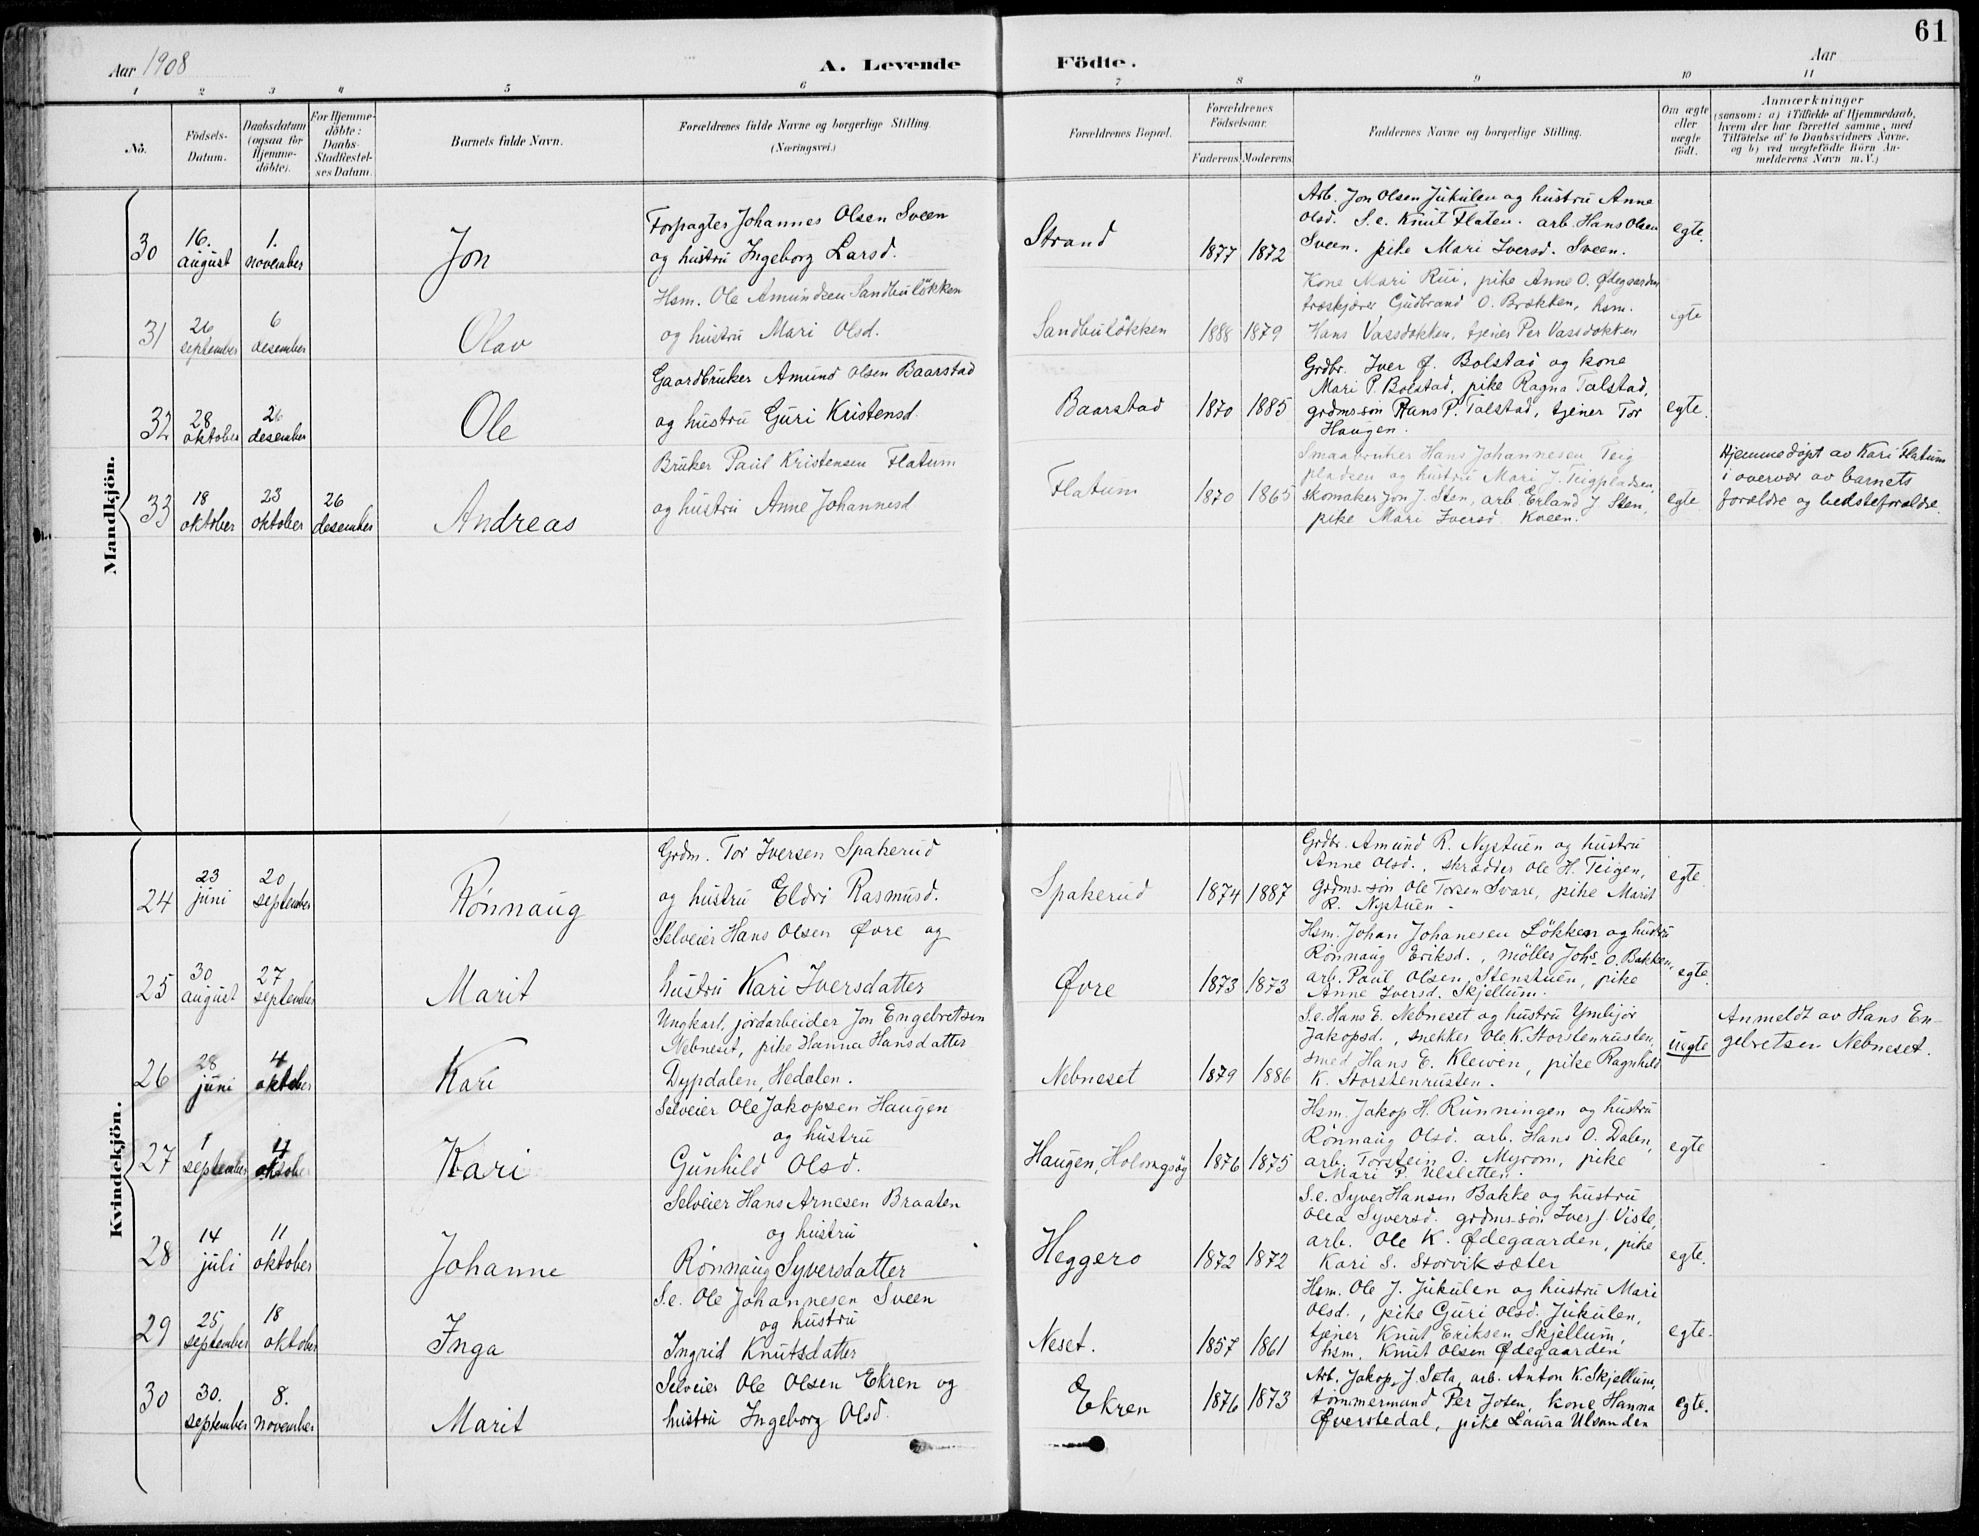 61
Aar 1908
A. Levende Födte.
Aar
1 2 3 4 5 6 7 8 9 10 11
No.
Födsels-
Datum.
Daabsdatum
(ogsaa for
Hjemme-
döbte).
For Hjemme-
döbte:
Daabs-
Stadfæstel-
ses Datum.
Barnets fulde Navn.
Forældrenes fulde Navne og borgerlige Stilling.
(Næringsvei.)
Forældrenes Bopæl.
Forældrenes
Födselsaar.
Faderens Moderens
Faddernes Navne og borgerlige Stilling.
Om ægte
eller
uægte
födt.
Anmærkninger
(saasom: a) i Tilfælde af Hjemmedaab,
hvem der har forrettet samme, med
Tilföielse af to Daabsvidners Navne.
og b) ved uægtefödte Börn An-
melderens Navn m. V.)
Mandkjön.
30
16.
august
1.
november
Jon
Forpagter Johannes Olsen Sveen
og hustru Ingeborg Larsd.
Strand
1877 1872
Arb. Jon Olsen Jukulen og hustru Anne
Olsd. S.e. Knut Flaten. arb. Hans Olsen
Sveen. pike Mari Iversd. Sveen.
egte.
31
26
september
6
desember
Olav
Hsm. Ole Amundsen Sandbuløkken
og hustru Mari Olsd.
Sandbuløkken
1888 1879
Kone Mari Rui, pike Anne O. Ødegaarden
træskjærer Gudbrand O. Brækken, hsm.
Hans Vassdokken, tjener Per Vassdokken
egte
32
28
oktober
26
desember
Ole
Gaardbruker Amund Olsen Baarstad
og hustru Guri Kristensd.
Baarstad
1870 1885
Grdbr. Iver Ø. Bolstad og kone
Mari P. Bolstad, pike Ragna Talstad,
grdmssøn Hans P. Talstad, tjener Tor
Haugen.
egte.
33
18
oktober
23
oktober
26
desember
Andreas
Bruker Paul Kristensen Flatum
og hustru Anne Johannesd
Flatum
1870 1865
Smaabruker Hans Johannesen Teig
pladsen og hustru Mari J. Teigpladsen,
skomaker Jon J. Sten, arb. Erland J. Sten,
pike Mari Iversd. Kveen.
egte
Hjemmedøpt av Kari Flatum
i overvær av barnets
forældre og bedsteforældre.
Kvindekjön.
24
23
juni
20
september
Rønnaug
Grdm. Tor Iversen Spakerud
og hustru Eldri Rasmusd.
Spakerud
1874 1887
Grdbr. Amund R. Nystuen og hustru
Anne Olsd., skrædder Ole H. Teigen,
Grdms.søn Ole Torsen Svare, pike Marit
R. Nystuen.
egte
25
30
august
27
september
Marit
Selveier Hans Olsen Øvre og
hustru Kari Iversdatter
Øvre
1873 1873
Hsm. Johan Johanesen Løkken og hustru
Rønnaug Eriksd., møller Johs. O. Bakken,
arb. Paul Olsen Stenstuen, pike
Anne Iversd. Skjellum.
egte
26
28
juni
4
oktober
Kari
Ungkarl, jordarbeider Jon Engebretsen
Nebneset, pike Hanna Hansdatter
Dypdalen, Hedalen.
Nebneset
1879 1886
S.e. Hans E. Nebneset og hustru Ymbjør
Jakopsd., snekker Ole K. Storstenrusten,
smed Hans E. Kleiven, pike Ragnhild
K. Storstenrusten.
uegte
Anmeldt av Hans En-
gebretsen Nebneset.
27
1
september
4
oktober
Kari
Selveier Ole Jakopsen Haugen
og hustru
Gunhild Olsd.
Haugen, Holongsøy
1876 1875
Hsm. Jakop H. Runningen og hustru
Rønnaug Olsd. arb. Hans O. Dalen,
arb. Torstein O. Myrom, pike
Mari P. Ulsletten.
egte
28
14
juli
11
oktober
Johanne
Selveier Hans Arnesen Braaten
og hustru
Rønnaug Syversdatter
Heggero
1872 1872
S.e. Syver Hansen Bakke og hustru
Olea Syversd. grdmssøn Iver J. Viste,
arb. Ole K. Ødegaarden, pike
Kari S. Storviksæter
egte.
29
25
september
18
oktober
Inga
S.e. Ole Johannesen Sveen
og hustru
Ingrid Knutsdatter
Neset.
1857 1861
Hsm. Ole J. Jukulen og hustru Mari
Olsd., pike Guri Olsd. Jukulen,
tjener Knut Eriksen Skjellum,
hsm. Knut Olsen Ødegaarden
egte.
30
30.
september
8.
november
Marit
Selveier Ole Olsen Ekren og
hustru Ingeborg Olsd.
Ekren
1876 1873
Arb. Jakop J. Sæta, arb. Anton K. Skjellum,
tømmermand Per Joten, kone Hanna
Øverstedal, pike Laura Ulsanden
egte.